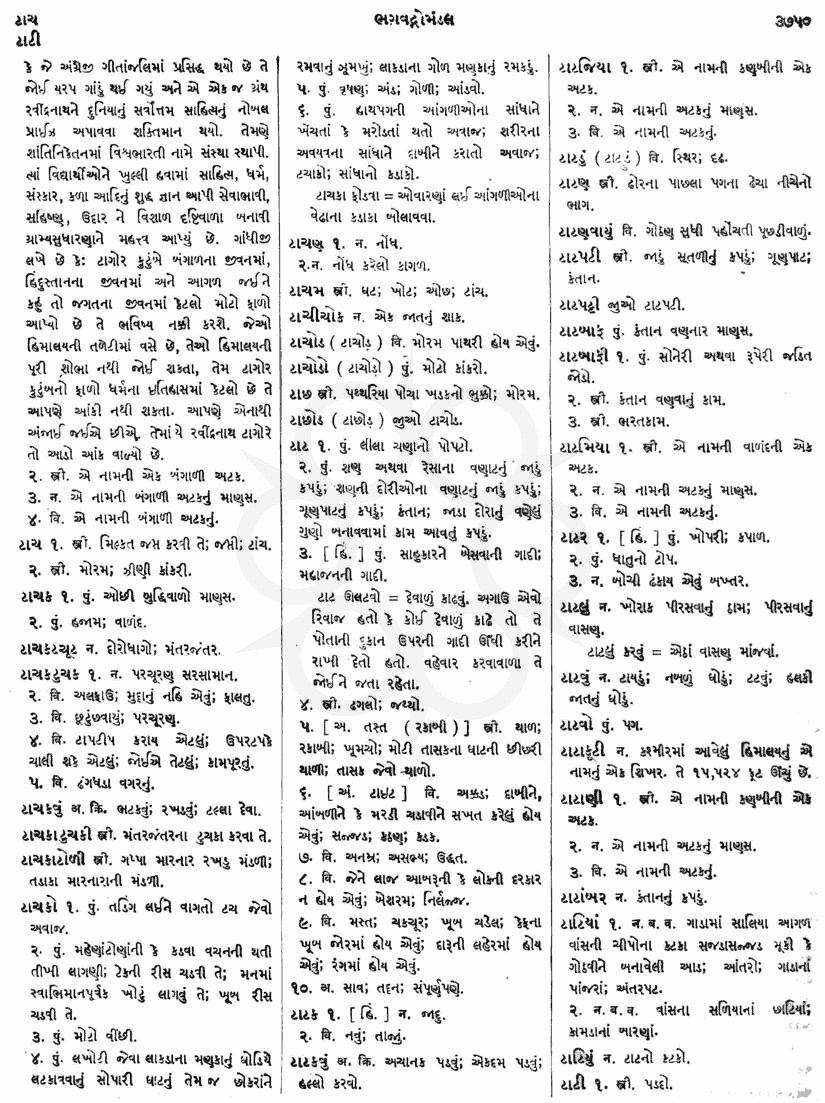 ટાચ
ટાટી
ભગવદ્ગોમંડલ
૩૭૫૦
કે જે અંગ્રેજી ગીતાંજલિમાં પ્રસિદ્ધ થયો છે તે
જોઈ યરપ ગાંડું થઈ ગયું અને એ એક જ ગ્રંથ
રવીંદ્રનાથને દુનિયાનું સર્વોત્તમ સાહિત્યનું નોબલ
પ્રાઈઝ અપાવવા શક્તિમાન થયો. તેમણે
શાંતિનિકેતનમાં વિશ્વભારતી નામે સંસ્થા સ્થાપી.
ત્યાં વિદ્યાર્થીઓને ખુલ્લી હવામાં સાહિત્ય, ધર્મ,
સંસ્કાર, કળા આદિનું શુદ્ધ જ્ઞાન આપી સેવાભાવી,
સહિષ્ણુ, ઉદાર ને વિશાળ દૃષ્ટિવાળા બનાવી
ગ્રામ્યસુધારણાને મહત્ત્વ આપ્યું છે. ગાંધીજી
લખે છે કે: ટાગોર કુટુંબે બંગાળના જીવનમાં,
હિંદુસ્તાનના જીવનમાં અને આગળ જઈને
કહું તો જગતના જીવનમાં કેટલો મોટો ફાળો
આપ્યો છે તે ભવિષ્ય નક્કી કરશે. જેઓ
હિમાલયની તળેટીમાં વસે છે, તેઓ હિમાલયની
પૂરી શોભા નથી જોઈ શકતા, તેમ ટાગોર
કુટુંબનો ફાળો ધર્મના ઇતિહાસમાં કેટલો છે તે
આપણે આંકી નથી શકતા. આપણે એનાથી
અંજાઈ જઈએ છીએ. તેમાં યે રવીંદ્રનાથ ટાગોરે
તો આડો આંક વાળ્યો છે.
૨. સ્ત્રી. એ નામની એક બંગાળી અટક.
૩. ન. એ નામની બંગાળી અટકનું માણસ.
૪. વિ. એ નામની બંગાળી અટકનું.
ટાચ ૧. સ્ત્રી. મિલ્કત જપ્ત કરવી તે; જપ્તી; ટાંચ.
૨. સ્ત્રી. મોરમ; ઝીણી કાંકરી.
ટાચક ૧. પું. ઓછી બુદ્ધિવાળો માણસ.
૨. પું. હજામ; વાળંદ.
ટાચકટચૂટ ન. દોરોધાગો; મંતરજંતર.
ટાચકટુચક ૧. ન. પરચૂરણ સરસામાન.
૨. વિ. અલફાઉ; મુદ્દાનું નહિ એવું; ફાલતુ.
૩. વિ. છૂટુંછવાયું; પરચૂરણ.
૪. વિ. ટાપટીપ કરાય એટલું; ઉપરટપકે
ચાલી શકે એટલું; જોઈએ તેટલું; કામપૂરતું.
૫. વિ. ઢંગધડા વગરનું.
ટાચકવું અ. ક્રિ. ભટકવું; રખડવું; ટલ્લા દેવા.
ટાચકાટુચકી સ્ત્રી. મંતરજંતરના ટુચકા કરવા તે.
ટાચકાટોળી સ્ત્રી. ગપ્પા મારનાર રખડુ મંડળી;
તડાકા મારનારાની મંડળી.
ટાચકો ૧. પું. તડિંગ લઈને વાગતો ટચ જેવો
અવાજ.
૨. પું. મહેણાંટોણાંની કે કડવા વચનની થતી
તીખી લાગણી; ટેકની રીસ ચડવી તે; મનમાં
સ્વાભિમાનપૂર્વક ખોટું લાગવું તે; ખૂબ રીસ
ચડવી તે.
૩. પું. મોટો વીંછી.
૪. પું. લખોટી જેવા લાકડાના મણકાનું ઘોડિયે
લટકાવવાનું સોપારી ઘાટનું તેમ જ છોકરાંને
રમવાનું ઝૂમખું; લાકડાના ગોળ મણકાનું રમકડું.
૫. પું. વૃષણ; અંડ; ગોળી; આંડવો.
૬. પું. હાથપગની આંગળીઓના સાંધાને
ખેંચતાં કે મરોડતાં થતો અવાજ; શરીરના
અવયવના સાંધાને દાબીને કરાતો અવાજ;
ટચાકો; સાંધાનો કડાકો.
ટાચકા ફોડવા = ઓવારણાં લઈ આંગળીઓના
વેઢાના કડાકા બોલાવવા.
ટાચણ ૧. ન. નોંધ.
૨. ન. નોંધ કરેલો કાગળ.
ટાચમ સ્ત્રી. ઘટ; ખોટ; ઓછ; ટાંચ.
ટાચીચોક ન. એક જાતનું શાક.
ટાચોડ ( ટાચૉડ ) વિ. મોરમ પાથરી હોય એવું.
ટાચોડો ( ટાચૉડો ) પું. મોટો કાંકરો.
ટાછ સ્ત્રી. પથ્થરિયા પોચા ખડકનો ભુક્કો; મોરમ.
ટાછોડ ( ટાછૉડ ) જુઓ ટાચોડ.
ટાટ ૧. પું. લીલા ચણાનો પોપટો.
૨. પું. શણ અથવા રેસાના વણાટનું જાડું
કપડું; શણની દોરીઓના વણાટનું જાડું કપડું;
ગૂણપાટનું કપડું; કંતાન; જાડા દોરાનું વણેલું
ગુણો બનાવવામાં કામ આવતું કપડું.
૩. [ હિં. ] પું. સાહુકારને બેસવાની ગાદી;
મહાજનની ગાદી.
ટાટ ઊલટવો = દેવાળું કાઢવું. અગાઉ એવો
રિવાજ હતો કે કોઈ દેવાળું કાઢે તો તે
પોતાની દુકાન ઉપરની ગાદી ઊંધી કરીને
રાખી દેતો હતો. વહેવાર કરવાવાળા તે
જોઈને જતા રહેતા.
૪. સ્ત્રી. ઢગલો; જથ્થો.
૫. [ અ. તસ્ત ( રકાબી ) ] સ્ત્રી. થાળ;
રકાબી; ખૂમચો; મોટી તાસકના ઘાટની છીછરી
થાળી; તાસક જેવો થાળો.
૬. [ અં. ટાઇટ ] વિ. અક્કડ; દાબીને,
આંબળીને કે મરડી ચડાવીને સખત કરેલું હોય
એવું; સજ્જડ; કઠણ; કડક.
૭. વિ. અનમ્ર; અસભ્ય; ઉદ્ધત.
૮. વિ. જેને લાજ આબરૂની કે લોકની દરકાર
ન હોય એવું; બેશરમ; નિર્લજ્જ.
૯. વિ. મસ્ત; ચકચૂર; ખૂબ ચડેલ; કેફના
ખૂબ જોરમાં હોય એવું; દારૂની લહેરમાં હોય
એવું; રંગમાં હોય એવું.
૧૦. અ. સાવ; તદ્દન; સંપૂર્ણપણે.
ટાટક ૧. [ હિં. ] ન. જાદુ.
૨. વિ. નવું; તાજું.
ટાટકવું અ. ક્રિ. અચાનક પડવું; એકદમ પડવું;
હલ્લો કરવો.
ટાટજિયા ૧. સ્ત્રી. એ નામની કણબીની એક
અટક.
૨. ન. એ નામની અટકનું માણસ.
૩. વિ. એ નામની અટકનું.
ટાટડું ( ટાટડું ) વિ. સ્થિર; દૃઢ.
ટાટણ સ્ત્રી. ઢોરના પાછલા પગના ઢેચા નીચેનો
ભાગ.
ટાટણવાયું વિ. ગોઠણ સુધી પહોંચતી પૂછડીવાળું.
ટાટપટી સ્ત્રી. જાડું સૂતળીનું કપડું; ગૂણપાટ;
કંતાન.
ટાટપટ્ટી જુઓ ટાટપટી.
ટાટબાફ પું. કંતાન વણનાર માણસ.
ટાટબાફી ૧. પું. સોનેરી અથવા રૂપેરી જડિત
જોડો.
૨. સ્ત્રી. કંતાન વણવાનું કામ.
૩. સ્ત્રી. ભરતકામ.
ટાટમિયા ૧. સ્ત્રી. એ નામની વાળંદની એક
અટક.
૨. ન. એ નામની અટકનું માણસ.
૩. વિ. એ નામની અટકનું.
ટાટર ૧. [ હિં. ] પું. ખોપરી; કપાળ.
૨. પું. ધાતુનો ટોપ.
૩. ન. બોચી ઢંકાય એવું બખ્તર.
ટાટલું ન. ખોરાક પીરસવાનું ઠામ; પીરસવાનું
વાસણ.
ટાટલું કરવું = એઠાં વાસણ માંજવાં.
ટાટવું ન. ટાયડું; નબળું ઘોડું; ટટવું; હલકી
જાતનું ઘોડું.
ટાટવો પું. પગ.
ટાટાકૂટી ન. કશ્મીરમાં આવેલું હિમાલયનું એ
નામનું એક શિખર. તે ૧૫,૫૨૪ ફૂટ ઊંચું છે.
ટાટાણી ૧. સ્ત્રી. એ નામની કણબીની એક
અટક.
૨. ન. એ નામની અટકનું માણસ.
૩. વિ. એ નામની અટકનું.
ટાટાંબર ન. કંતાનનું કપડું.
ટાટિયાં ૧. ન. બ. વ. ગાડામાં સાલિયા આગળ
વાંસની ચીપોના કટકા સજડાસજ્જડ મૂકી કે
ગોઠવીને બનાવેલી આડ; આંતરો; ગાડાનાં
પાંજરાં; અંતરપટ.
૨. ન. બ. વ. વાંસના સળિયાનાં છાટિયાં;
કામડાનાં બારણાં.
ટાટિયું ન. ટાટનો કટકો.
ટાટી ૧. સ્ત્રી. પડદો.